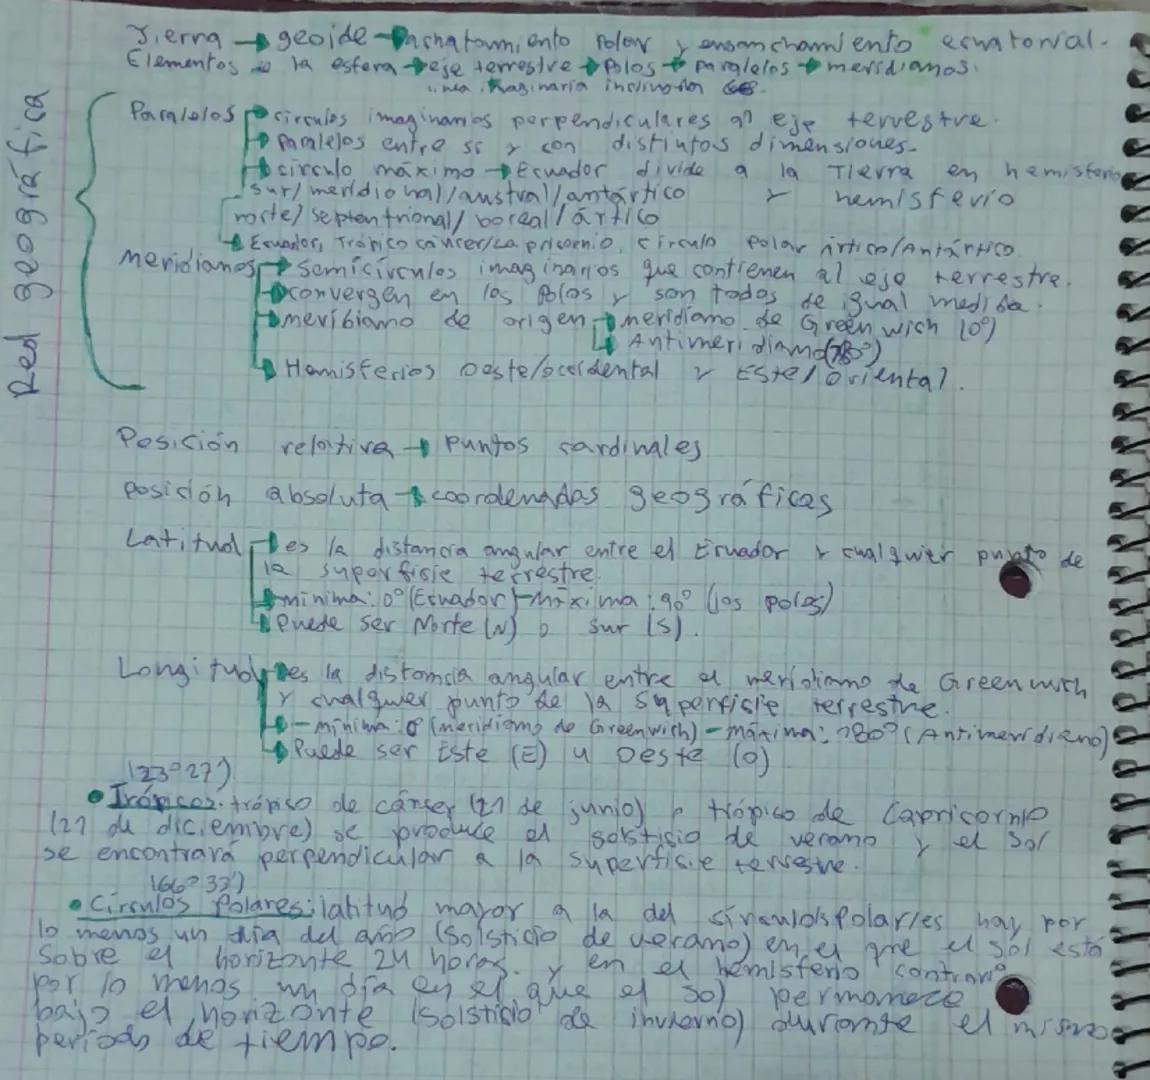 Tierra → geoide → Achatamiento Polar y ensanchamiento ecuatorial.
Elementos de la esfera → eje terrestre → Polos → Paralelos → meridianos.
Línea imaginaria inclinación
Red geográfica
Paralelos → círculos imaginarios perpendiculares al eje terrestre.
→ Paralelos entre sí y con distintas dimensiones.
→ círculo máximo → Ecuador divide a la Tierra en hemisferio
sur/meridional/austral/antártico y hemisferio
norte/septentrional/boreal/ártico
→ Ecuador, Trópico cáncer/capricornio, círculo Polar Ártico/Antártico.
Meridianos → Semicírculos imaginarios que contienen al eje terrestre.
→ convergen en los Polos y son todos de igual medida.
→ meridiano de origen → meridiano de Greenwich (0°)
→ Antimeridiano (180°)
→ Hemisferios Oeste/occidental y Este/Oriental.
Posición relativa → Puntos cardinales
Posición absoluta → coordenadas geográficas
Latitud → es la distancia angular entre el Ecuador y cualquier punto de
la superficie terrestre.
→ mínima: 0° (Ecuador) - Máxima: 90° (los polos)
→ Puede ser Norte (N) o Sur (S).
Longitud → es la distancia angular entre el meridiano de Greenwich
y cualquier punto de la superficie terrestre.
→ - mínima: 0° (meridiano de Greenwich) - máxima: 180° (Antimeridiano)
→ Puede ser Este (E) u Oeste (O)
(23°27')
• Trópicos: trópico de cáncer (21 de junio) o trópico de Capricornio
(21 de diciembre) se produce el solsticio de verano y el Sol
se encontrará perpendicular a la superficie terrestre.
(66°32')
• Círculos Polares: latitud mayor a la del círculos polar/es hay por
lo menos un día del año (solsticio de verano) en el que el sol está
sobre el horizonte 24 horas. y en el hemisferio contrario
por lo menos un día en el que el sol permanece
bajo el horizonte (solsticio de invierno) durante el mismo
periodo de tiempo.